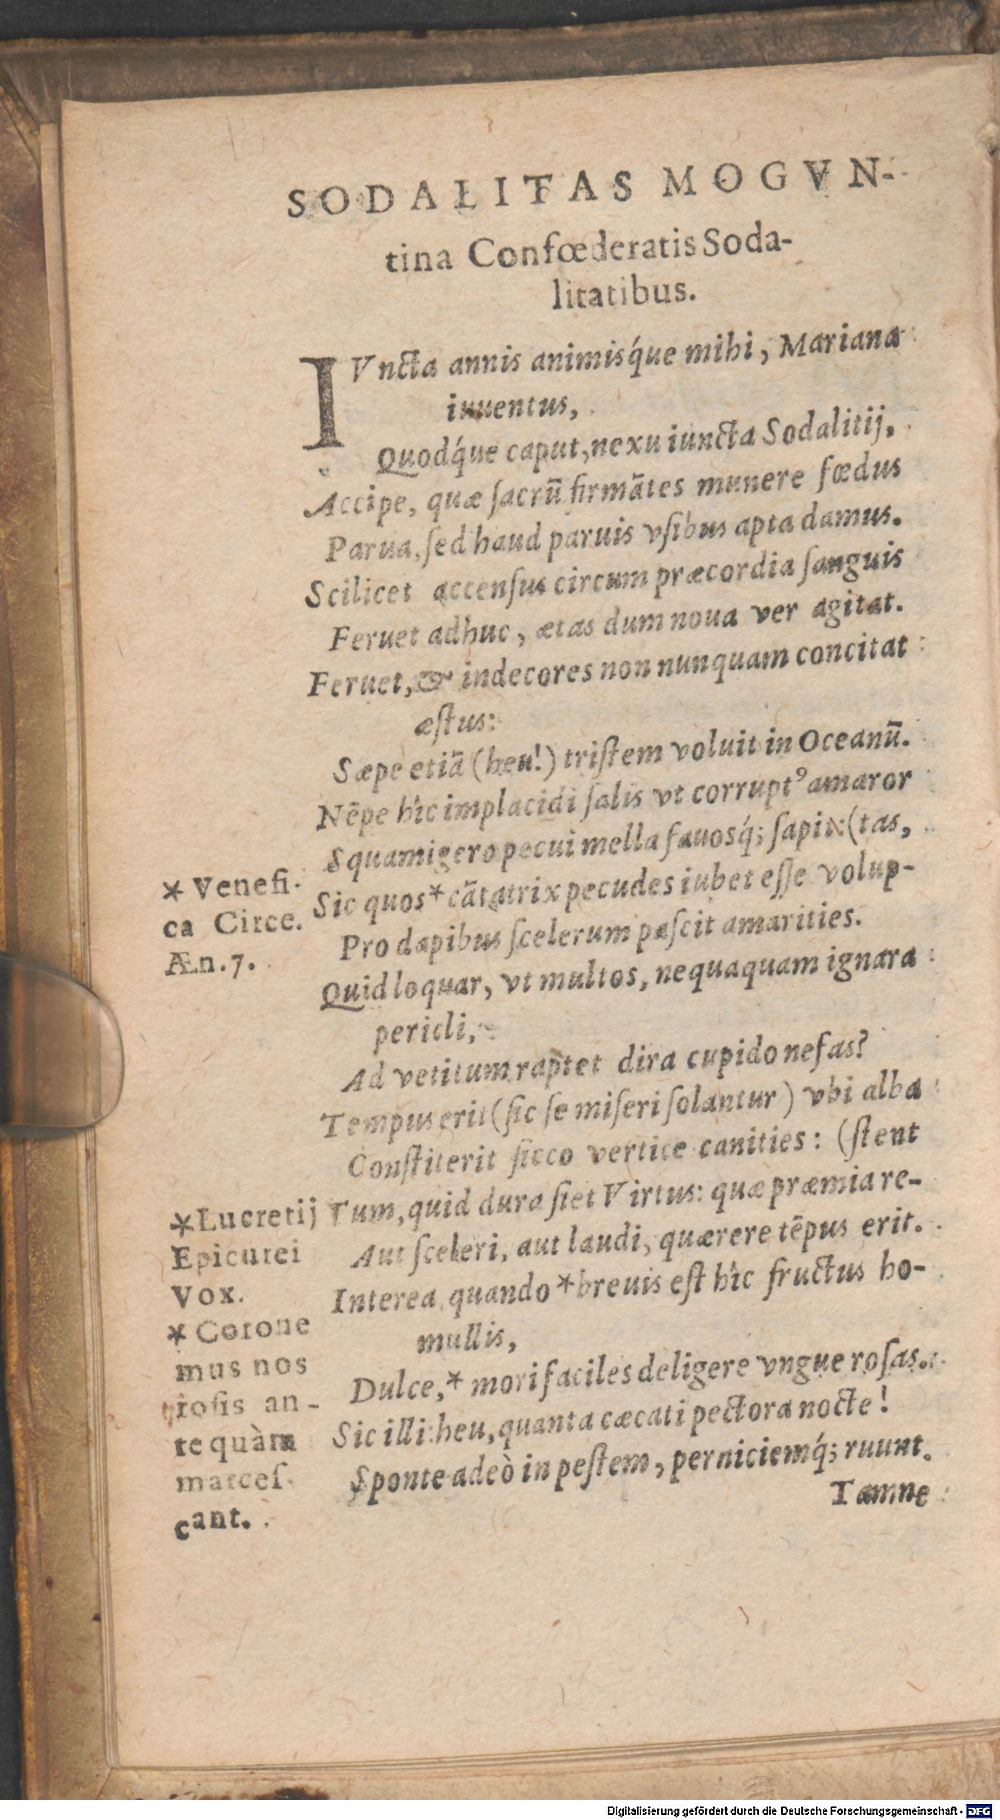 SODALITAS MOGVN-
tina Confœderatis Soda-
litatibus.
IVncta annis animisq́ue mihi, Mariana
iuuentus,
Quodq́ue caput, nexu iuncta Sodalitij,
Accipe, quæ ſacrū firmātes munere fœdus
Parua, ſed haud paruis vſibus apta damus.
Scilicet accenſus circum præcordia ſanguis
Feruet adhuc, ætas dum noua ver agitat.
Feruet, & indecores non nunquam concitat
æſtus:
Sæpe etiā (heu!) triſtem voluit in Oceanū.
Nēpe hîc implacidi ſalis vt corruptꝰ amaror
Squamigero pecui mella fauosq́; ſapit: (tas,
Sic quos * cātatrix pecudes iubet eſſe volup-
Pro dapibus ſcelerum paſcit amarities.
Quid loquar, vt multos, nequaquam ignara
pericli,
Ad vetitum raptet dira cupido nefas?
Tempus erit (ſic ſe miſeri ſolantur) vbi alba
Conſtiterit ſicco vertice canities: (ſtent
Tum, quid dura ſiet Virtus: quæ præmia re-
Aut ſceleri, aut laudi, quærere tēpus erit.
Interea quando * breuis eſt hîc fructus ho-
mullis,
Dulce, * mori faciles deligere vngue roſas.
Sic illi: heu, quanta cæcati pectora nocte!
Sponte adeò in peſtem, perniciemq́; ruunt.
Tamne
* Venefi-
ca Circe.
Æn. 7.
* Lucretij
Epicurei
Vox.
* Corone
mus nos
roſis an-
tequàm
marceſ-
cant.
Digitalisierung gefördert durch die Deutsche Forschungsgemeinschaft - DFG